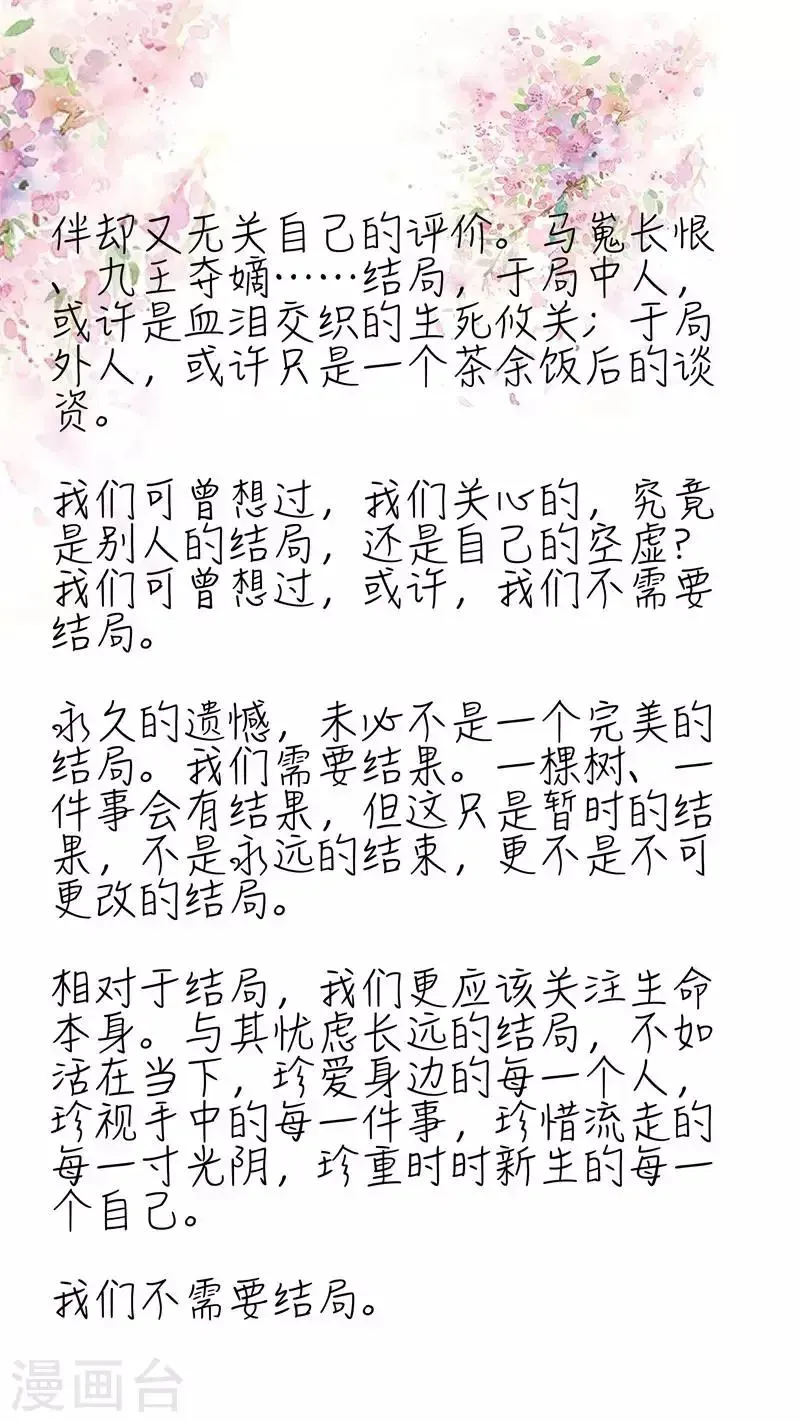 伴却又无关自己的评价。马嵬长恨
、九王夺嫡……结局，于局中人，
或许是血泪交织的生死攸关；于局
外人，或许只是一个茶余饭后的谈
资。
我们可曾想过，我们关心的，究竟
是别人的结局，还是自己的空虚？
我们可曾想过，或许，我们不需要
结局。
永久的遗憾，未必不是一个完美的
结局。我们需要结果。一棵树、一
件事会有结果，但这只是暂时的结
果，不是永远的结束，更不是不可
更改的结局。
相对于结局，我们更应该关注生命
本身。与其忧虑长远的结局，不如
活在当下，珍爱身边的每一个人，
珍视手中的每一件事，珍惜流走的
每一寸光阴，珍重时时新生的每一
个自己。
我们不需要结局。
漫画台